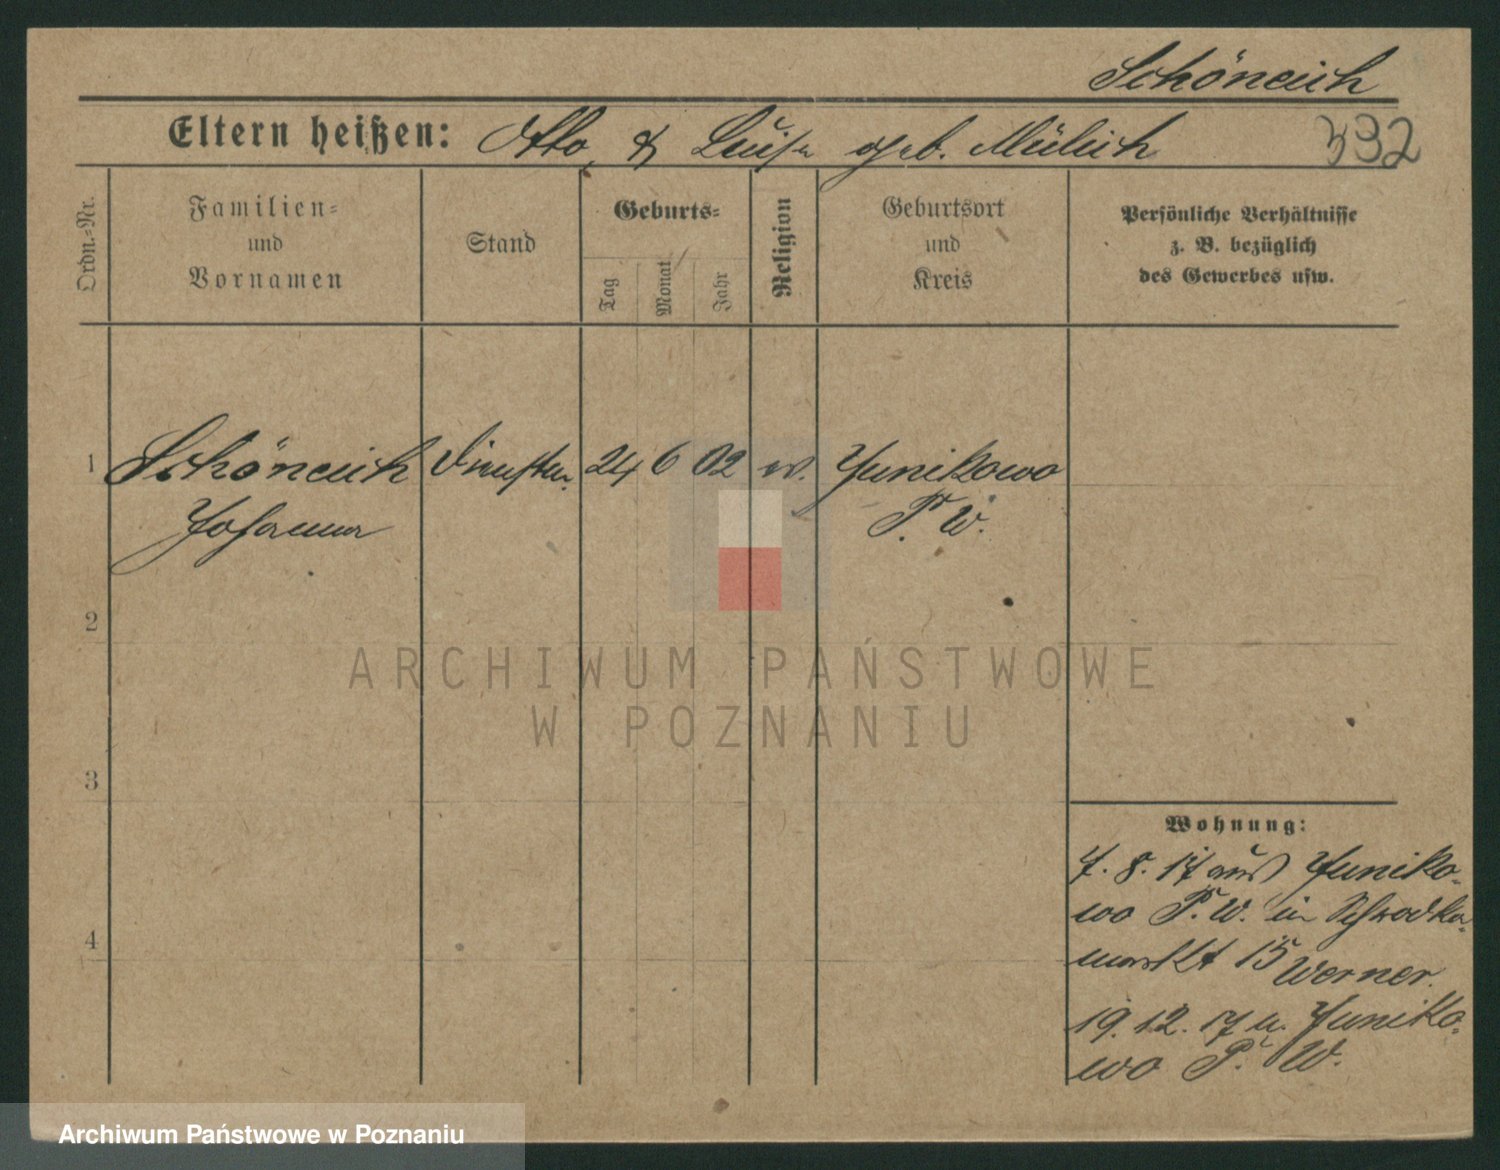 Schöneich
Eltern heißen: Otto & Luise geb. Mülich
332
Ordn.-Nr.
Familien-
und
Vornamen
Stand
Geburts-
Tag
Monat
Jahr
Religion
Geburtsort
und
Kreis
Persönliche Verhältnisse
z. B. bezüglich
des Gewerbes usw.
1 Schöneich 24 6 02 ev. Junikowo
Johanna P. W.
2
3
4
ARCHIWUM PAŃSTWOWE
W POZNANIU
Wohnung:
7. 8. 17 aus Juniko-
wo P. W. in Schrodka-
markt 15 Werner.
19. 12. 17 n. Juniko-
wo P. W.
Archiwum Państwowe w Poznaniu